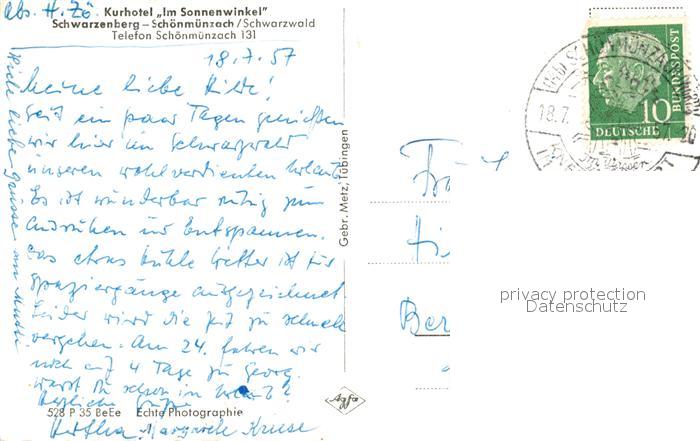 abs. H. Zö.
Kurhotel „Im Sonnenwinkel"
Schwarzenberg – Schönmünzach/Schwarzwald
Telefon Schönmünzach 131
18.7.57
Meine liebe Hilde!
Seit ein paar Tagen genießen
wir hier im Schwarzwald
unseren wohlverdienten Urlaub.
Es ist wunderbar ruhig zum
Ausruhen und Entspannen.
Das etwas kühle Wetter ist für
Spaziergänge ausgezeichnet.
Leider wird die Zeit zu schnell
vergehen. Am 24. fahren wir
noch auf 4 Tage zu Georg.
Warst Du schon im Urlaub?
Herzliche Grüße
Hertha, Margarete Kruese
Viele liebe Grüsse an Mutti
528 P 35 BeEe Echte Photographie
Agfa
Gebr. Metz, Tübingen
10
DEUTSCHE
BUNDESPOST
18.7.
Ber
privacy protection
Datenschutz